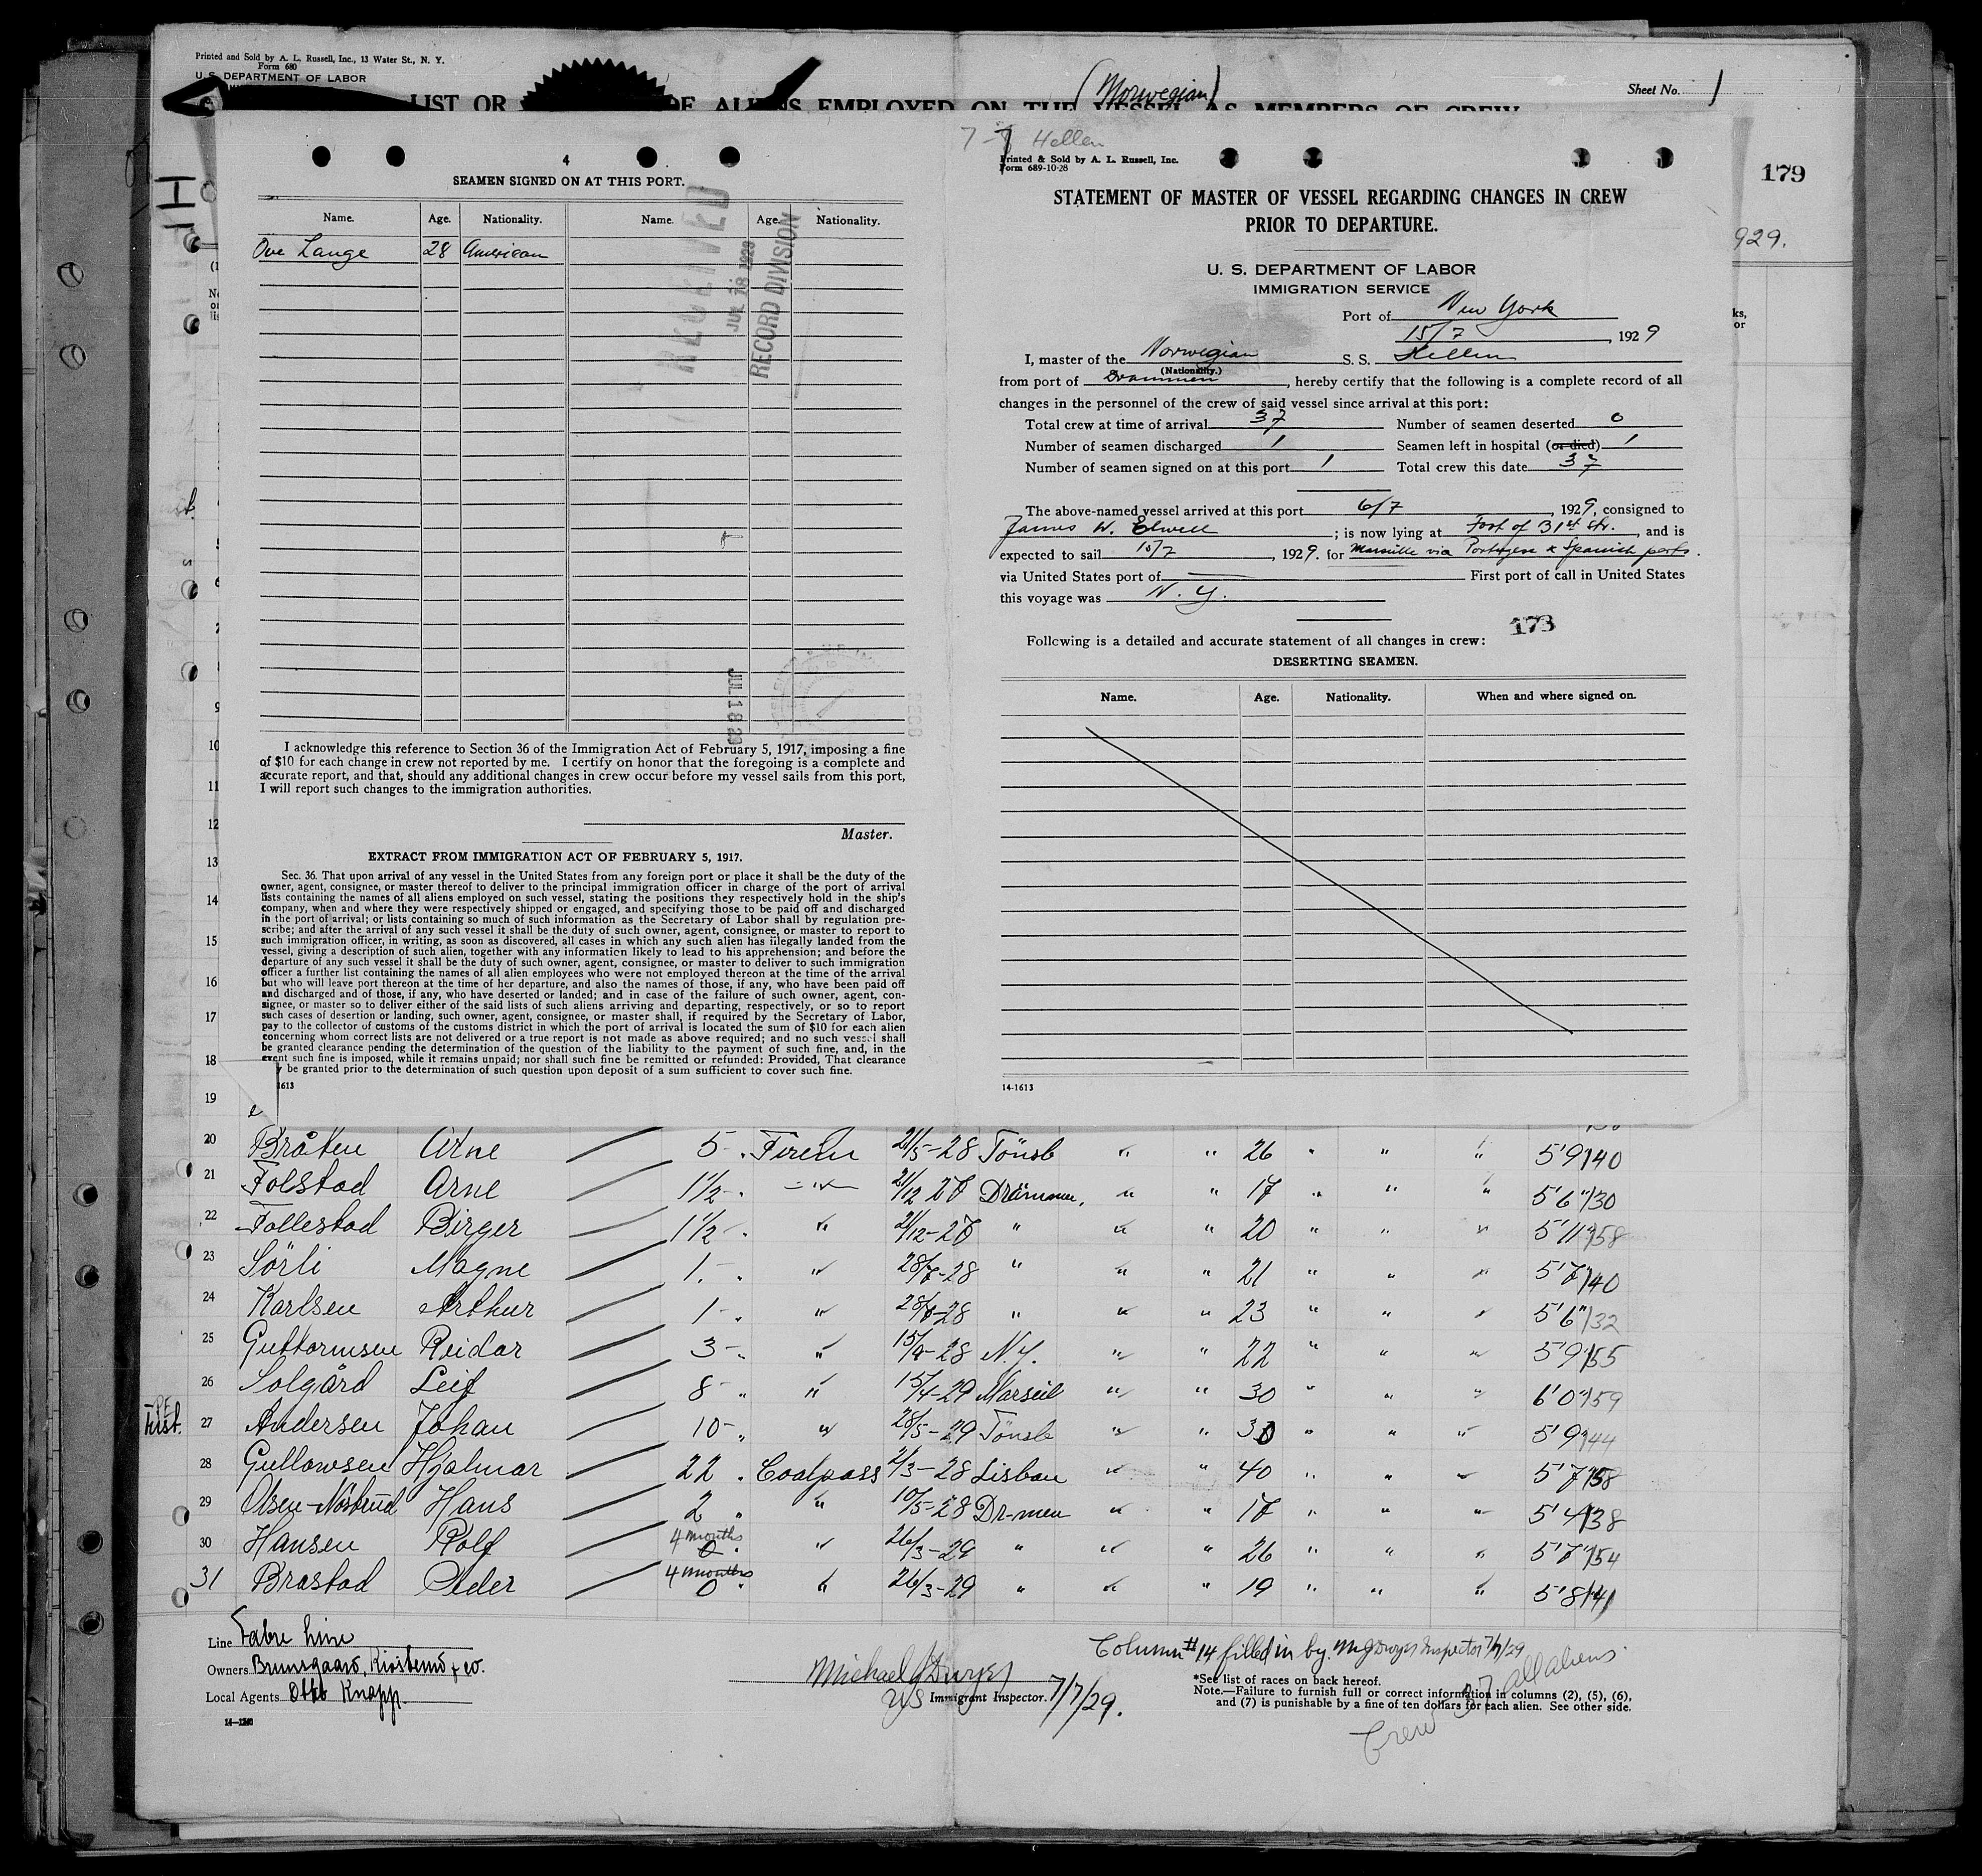 Printed and Sold by A. L. Russell, Inc., 13 Water St., N. Y.
Form 680
U. S. DEPARTMENT OF LABOR
(Norwegian)
Sheet No. 1
LIST OR OF ALIENS EMPLOYED ON THE VESSEL AS MEMBERS OF CREW
179
929.
ks,
or
4
SEAMEN SIGNED ON AT THIS PORT.
Name. Age. Nationality. Name. Age. Nationality.
Ove Lange 28 American
RECEIVED
JUL 18 1929
RECORD DIVISION
JUL 18 29
I acknowledge this reference to Section 36 of the Immigration Act of February 5, 1917, imposing a fine
of $10 for each change in crew not reported by me. I certify on honor that the foregoing is a complete and
accurate report, and that, should any additional changes in crew occur before my vessel sails from this port,
I will report such changes to the immigration authorities.
Master.
EXTRACT FROM IMMIGRATION ACT OF FEBRUARY 5, 1917.
Sec. 36. That upon arrival of any vessel in the United States from any foreign port or place it shall be the duty of the
owner, agent, consignee, or master thereof to deliver to the principal immigration officer in charge of the port of arrival
lists containing the names of all aliens employed on such vessel, stating the positions they respectively hold in the ship's
company, when and where they were respectively shipped or engaged, and specifying those to be paid off and discharged
in the port of arrival; or lists containing so much of such information as the Secretary of Labor shall by regulation pre-
scribe; and after the arrival of any such vessel it shall be the duty of such owner, agent, consignee, or master to report to
such immigration officer, in writing, as soon as discovered, all cases in which any such alien has illegally landed from the
vessel, giving a description of such alien, together with any information likely to lead to his apprehension; and before the
departure of any such vessel it shall be the duty of such owner, agent, consignee, or master to deliver to such immigration
officer a further list containing the names of all alien employees who were not employed thereon at the time of the arrival
but who will leave port thereon at the time of her departure, and also the names of those, if any, who have been paid off
and discharged and of those, if any, who have deserted or landed; and in case of the failure of such owner, agent, con-
signee, or master so to deliver either of the said lists of such aliens arriving and departing, respectively, or so to report
such cases of desertion or landing, such owner, agent, consignee, or master shall, if required by the Secretary of Labor,
pay to the collector of customs of the customs district in which the port of arrival is located the sum of $10 for each alien
concerning whom correct lists are not delivered or a true report is not made as above required; and no such vessel shall
be granted clearance pending the determination of the question of the liability to the payment of such fine, and, in the
event such fine is imposed, while it remains unpaid; nor shall such fine be remitted or refunded: Provided, That clearance
y be granted prior to the determination of such question upon deposit of a sum sufficient to cover such fine.
1613
7-7 Hellen
Printed & Sold by A. L. Russell, Inc.
Form 689-10-28
STATEMENT OF MASTER OF VESSEL REGARDING CHANGES IN CREW
PRIOR TO DEPARTURE.
U. S. DEPARTMENT OF LABOR
IMMIGRATION SERVICE
Port of New York
15/7, 1929
I, master of the Norwegian S. S. Hellen
(Nationality.)
from port of Drammen, hereby certify that the following is a complete record of all
changes in the personnel of the crew of said vessel since arrival at this port:
Total crew at time of arrival 37 Number of seamen deserted 0
Number of seamen discharged 1 Seamen left in hospital (or died) 1
Number of seamen signed on at this port 1 Total crew this date 37
The above-named vessel arrived at this port 6/7, 1929, consigned to
James W. Elwell; is now lying at Foot of 31st str., and is
expected to sail 15/7, 1929. for Marseille via Portugese & Spanish ports.
via United States port of — First port of call in United States
this voyage was N. Y.
173
Following is a detailed and accurate statement of all changes in crew:
DESERTING SEAMEN.
Name. Age. Nationality. When and where signed on.
14-1613
5
6
7
8
9
10
11
12
13
14
15
16
17
18
19
20 Bråten Arne 5 - " Firem 21/5-28 Tönsb " " 26 " " " 5'9" 140
21 Folstad Arne 1½ - " -"- 21/12 28 Drammen, " " 17 " " " 5'6" 130
22 Follestad Birger 1½ - " " 21/12-28 " " " 20 " " " 5'11" 158
23 Sörli Magne 1. - " " 28/7-28 " " " 21 " " " 5'7" 140
24 Karlsen Arthur 1 - " " 28/7-28 " " " 23 " " " 5'6" 132
25 Guttormsen Reidar 3 - " " 15/9-28 N.Y. " " 22 " " " 5'9" 155
26 Solgård Leif 8 - " " 15/4-29 Marseil " " 30 " " " 6'0" 159
27 Andersen Johan 10 - " " 28/5-29 Tönsb " " 30 " " " 5'9" 144
28 Gullowsen Hjalmar 22 " Coalpass 2/3-28 Lisbon " " 40 " " " 5'7" 158
29 Olsen-Nörstrud Hans 2 " " 10/5-28 Dr-men " " 17 " " " 5'4" 138
30 Hansen Rolf 4 months 0 " " 26/3-29 " " " 26 " " " 5'7" 154
31 Brastad Peder 4 months 0 " " 26/3-29 " " " 19 " " " 5'8" 141
Line Fabre Line
Owners Brunsgaard, Kiosterud & co.
Local Agents Otto Knapp.
14-1240
Michael J Dwyer
US Immigrant Inspector. 7/7/29.
Column #14 filled in by M J Dwyer Inspector 7/7/29
*See list of races on back hereof.
Note.—Failure to furnish full or correct information in columns (2), (5), (6),
and (7) is punishable by a fine of ten dollars for each alien. See other side.
Crew 37 all aliens